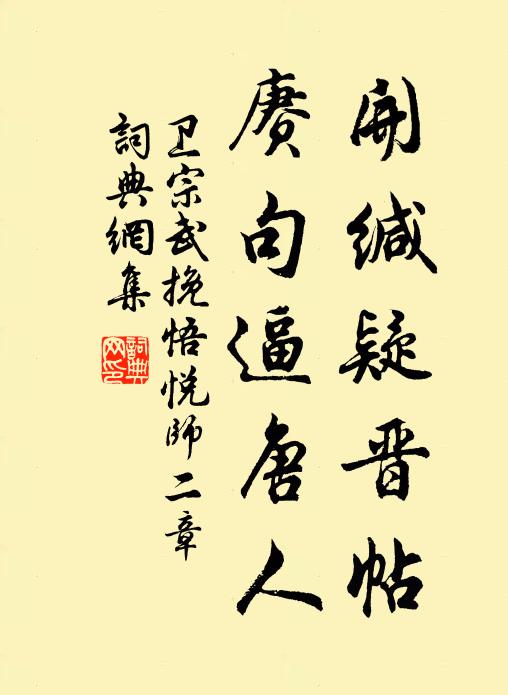 開缄疑晋帖
赓句逼唐人
卫宗武挽悟悦師二章
詞典網集
詞典网印